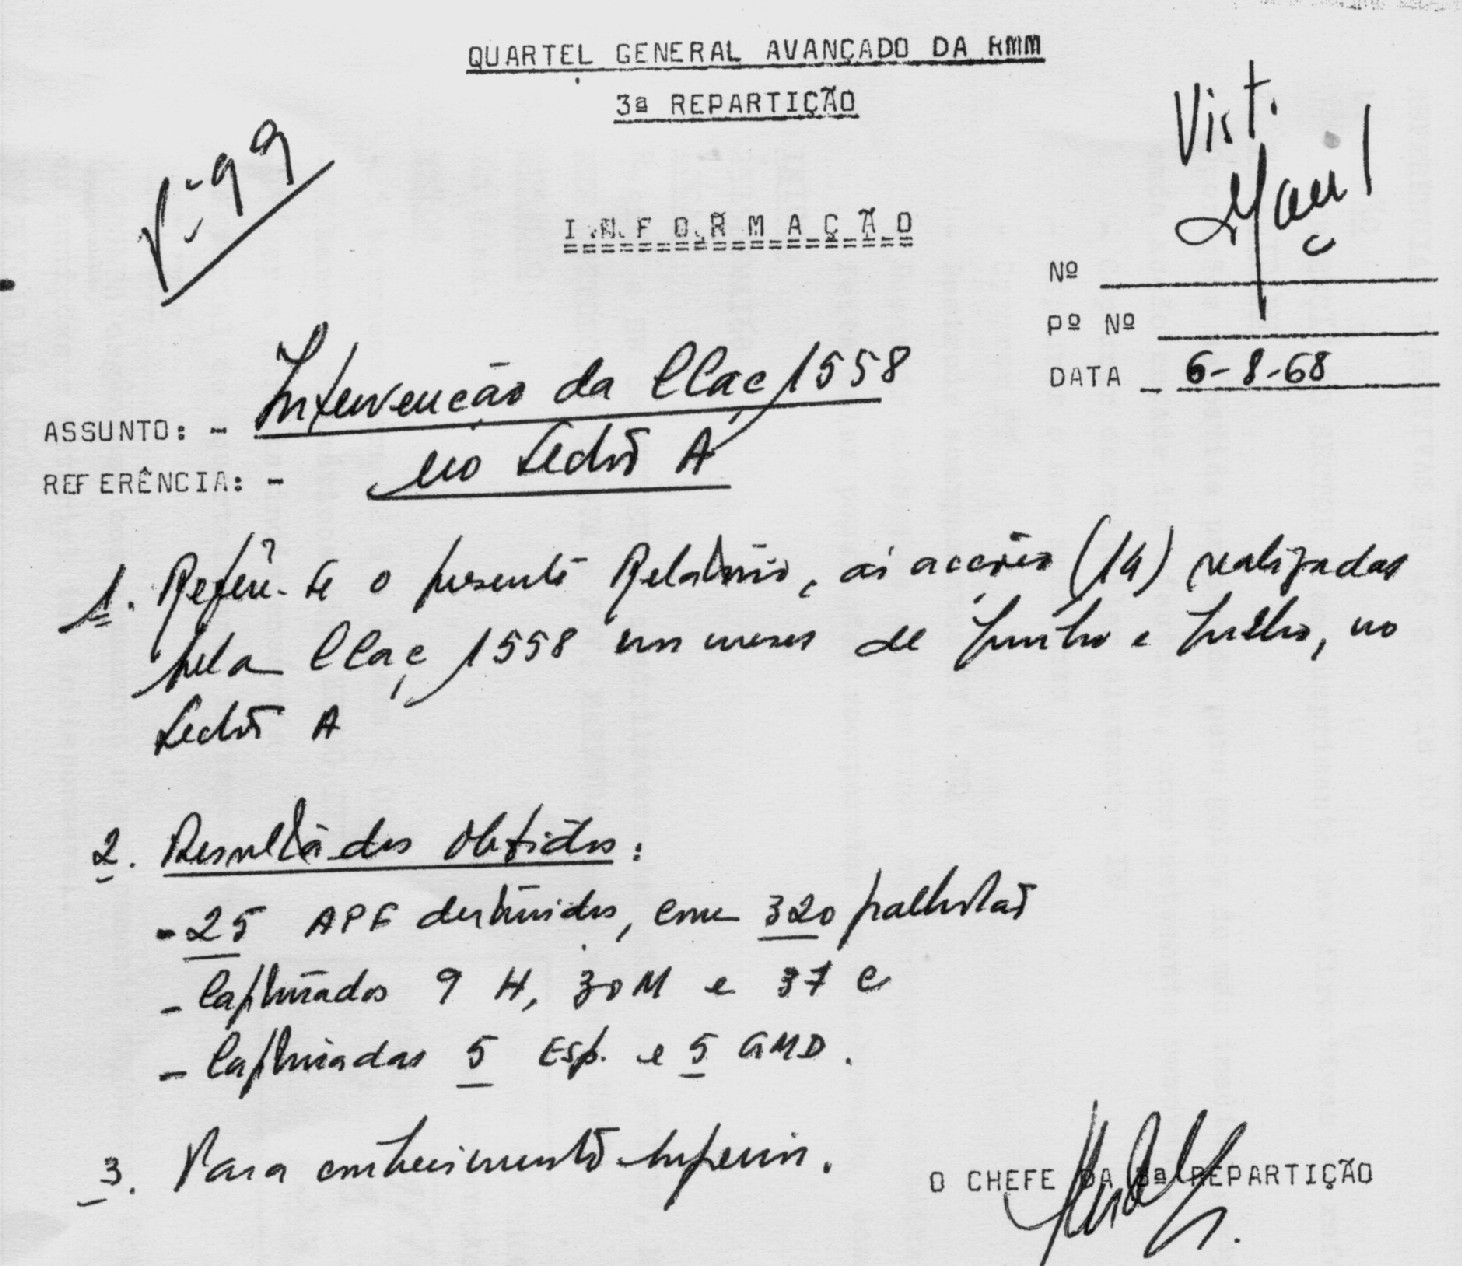 QUARTEL GENERAL AVANÇADO DA RMM
3ª REPARTIÇÃO
Nº 99
Vist.
INFORMAÇÃO
Nº
Pº Nº
DATA 6-8-68
ASSUNTO: - Intervenção da CCaç 1558
no Sector A
REFERÊNCIA: -
1. Refere-se o presente Relatório, às acções (14) realizadas
pela CCaç 1558 nos meses de Junho e Julho, no
Sector A
2. Resultados Obtidos:
- 25 APF destruidos, com 320 palhotas
- Capturados 9 H, 30 M e 37 C
- Capturadas 5 Esp. e 5 GMD.
3. Para conhecimento superior.
O CHEFE DA 3ª REPARTIÇÃO